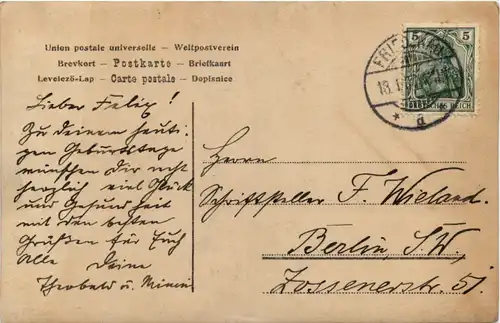 Union postale universelle – Weltpostverein
Brevkort – Postkarte – Briefkaart
Levelező-Lap – Carte postale – Dopisnice
5 5
DEUTSCHES REICH
Lieber Felix!
Zu Deinem heuti-
gen Geburtstage
wünschen Dir recht
herzlich viel Glück
und Gesundheit
mit den besten
Grüßen für Euch
Alle Deine
Theobald u. Mimmi
Herrn
Schriftsteller F. Wieland.
Berlin, S.W,
Zossenerstr. 51.